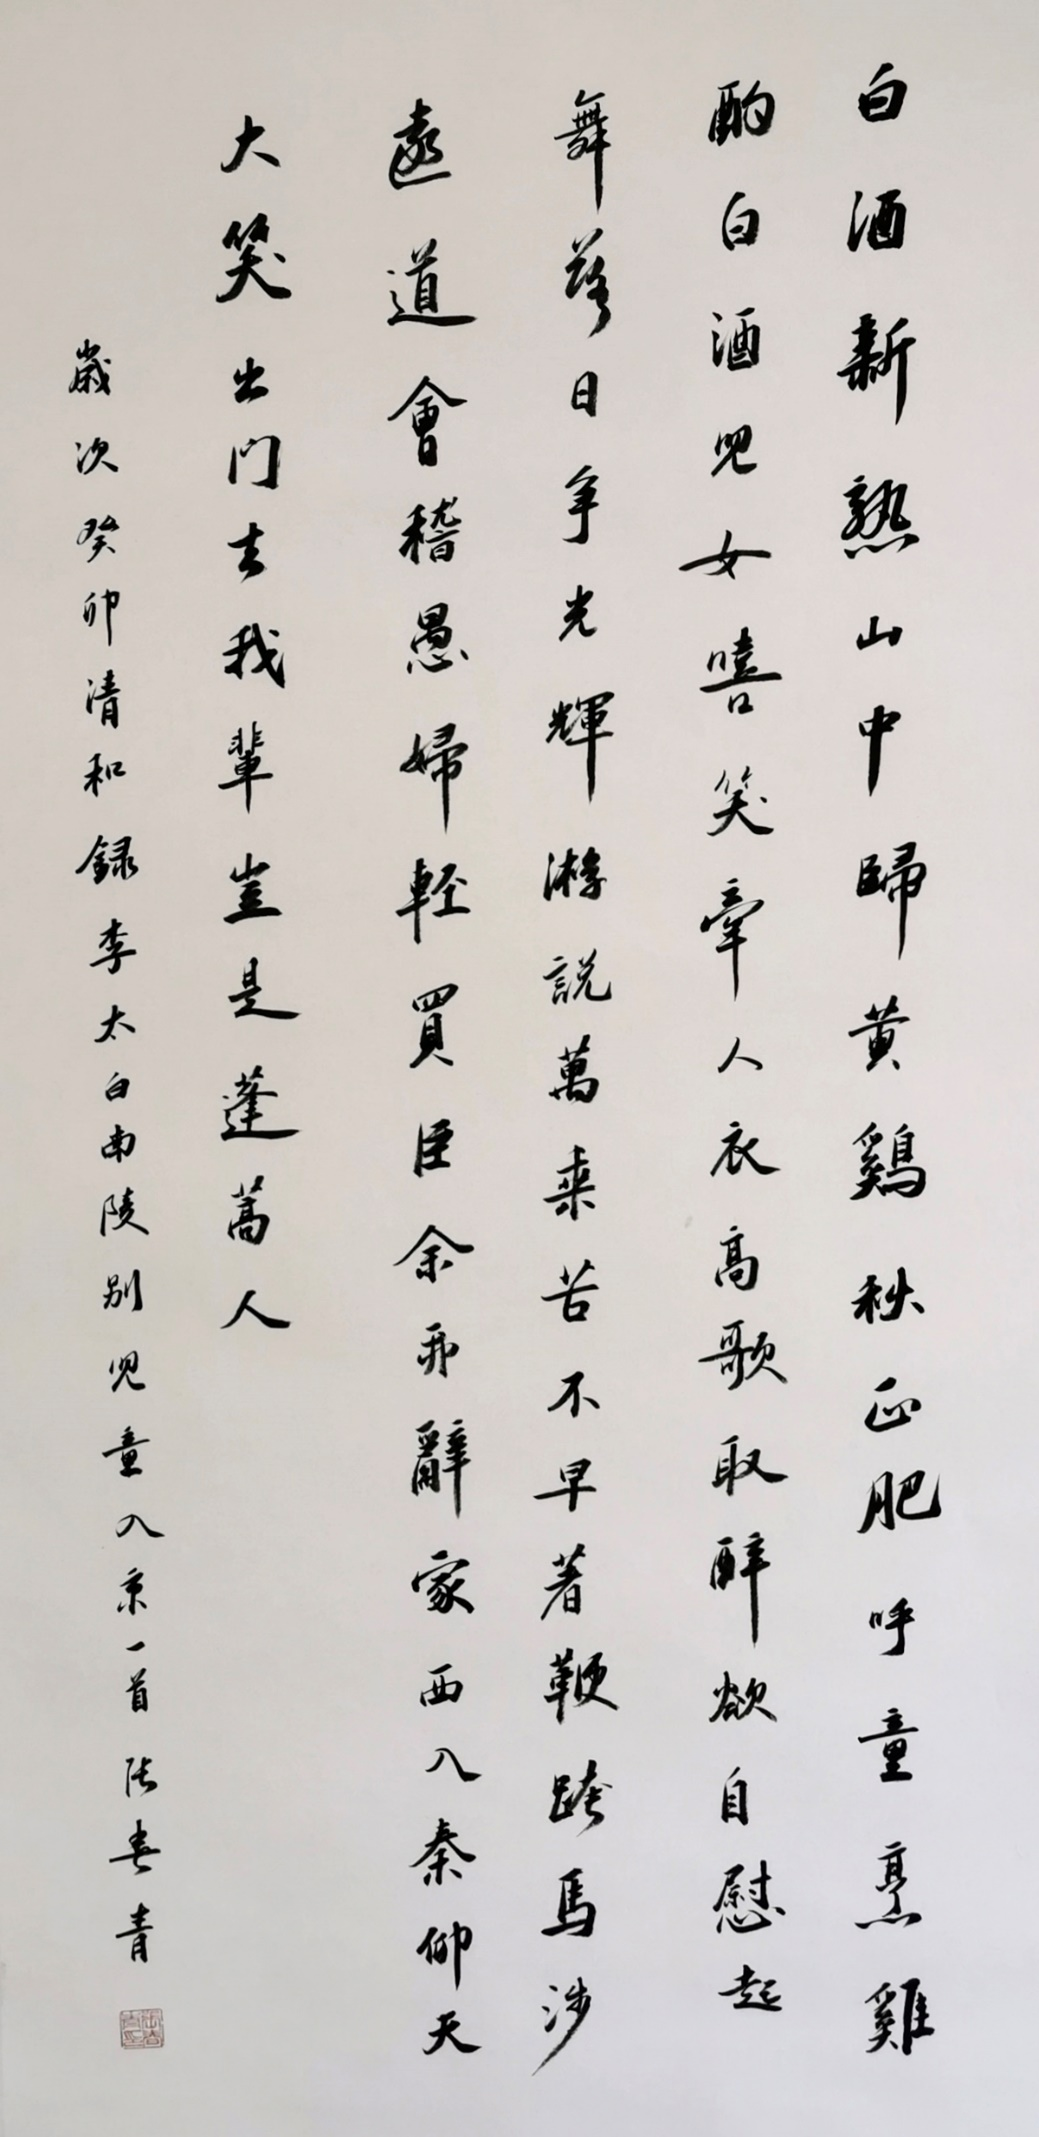 白酒新熟山中歸黄鷄秋正肥呼童烹雞
酌白酒兒女嘻笑牽人衣高歌取醉欲自慰起
舞落日争光輝游説萬乗苦不早著鞭跨馬涉
遠道會稽愚婦輕買臣余亦辭家西入秦仰天
大笑出門去我輩豈是蓬蒿人
歲次癸卯清和録李太白南陵别兒童入京一首 張春青